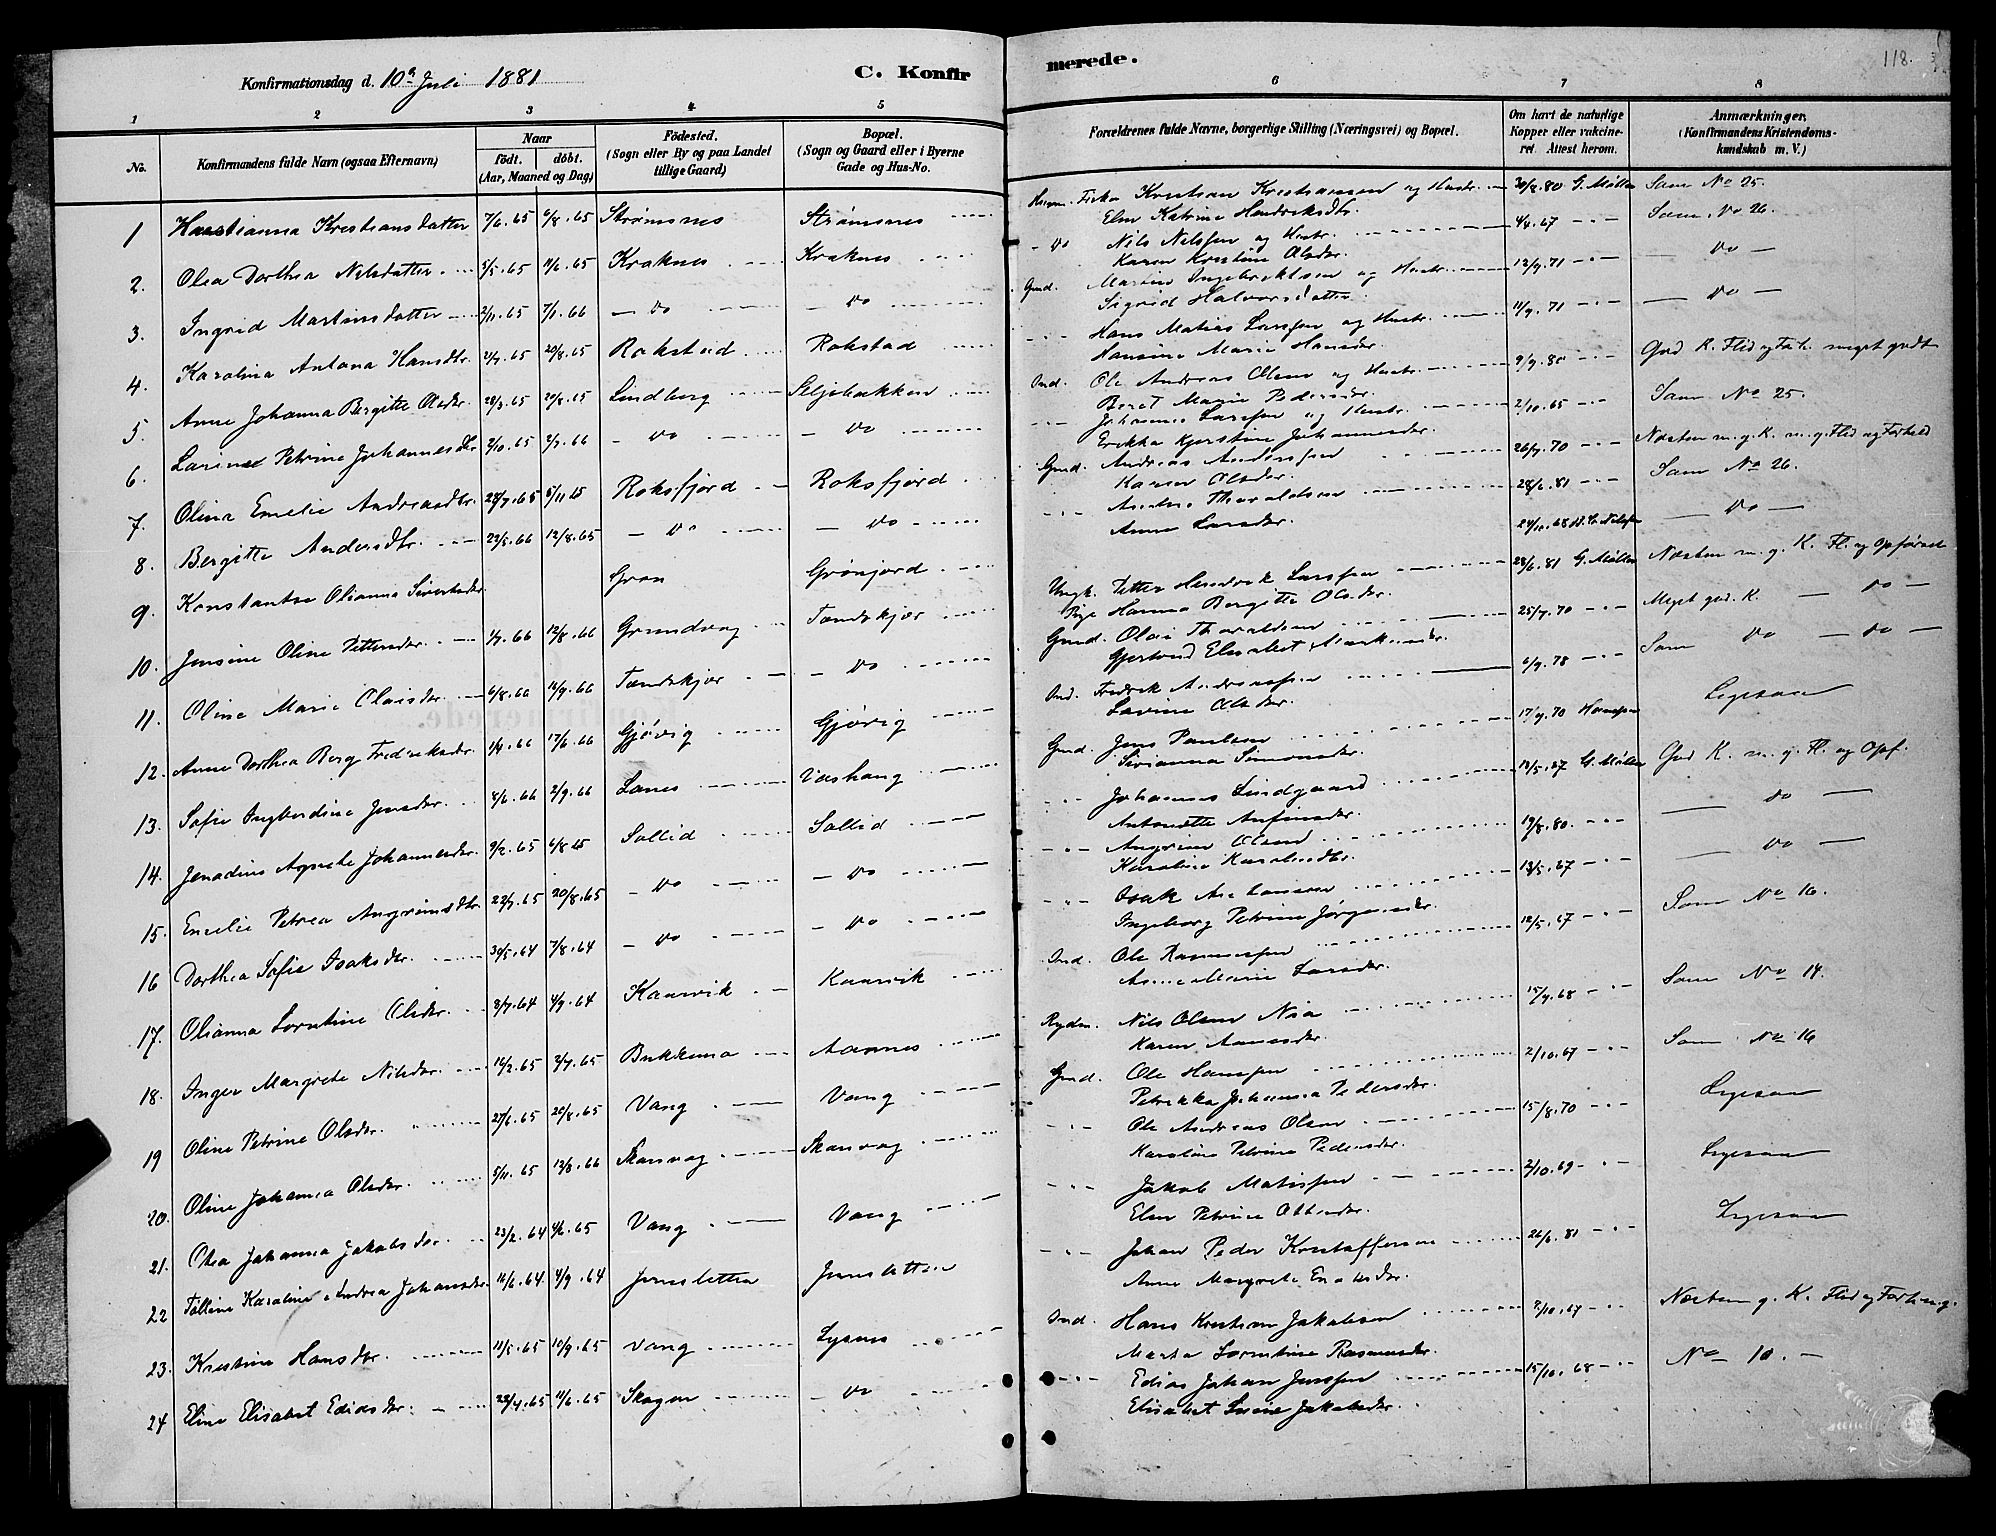 Konfirmationsdag d. 10de Juli 1881
C. Konfirmerede.
118.
1 2 3 4 5 6 7 8
No.
Konfirmandens fulde Navn (ogsaa Efternavn)
Naar
födt. döbt.
(Aar, Maaned og Dag)
Födested.
(Sogn eller By og paa Landet
tillige Gaard)
Bopæl.
(Sogn og Gaard eller i Byerne
Gade og Hus-No.
Forældrenes fulde Navne, borgerlige Stilling (Næringsvei) og Bopæl.
Om havt de naturlige
Kopper eller vaccine-
ret. Attest herom.
Anmærkninger.
(Konfirmandens Kristendoms-
kundskab m. V.)
1 Kristianna Kristiansdatter 7/6.65 6/8.65 Strømsnes Strømsnes Kristian Kristiansen og Hustr. Elen Katrine Hendriksdtr. 30/8.80 G. Møller Som No 25.
2. Olea Dorthea Nilsdatter 5/5.65 11/6.65 Kraknes Kraknes do Nils Nilssen og Hustr. Karen Kristine Olsdtr. 4/4.67 Som No 26.
3. Ingrid Martinsdatter 2/11.65 7/1.66 do do Gmd. Martin Ingebriktsen og Hustr. Sigrid Halvorsdatter 12/9.71 do
4. Karolina Antona Hansdtr. 21/7.65 20/8.65 Rokstad Rokstad Hans Matias Larssen og Hustr. Hansine Marie Hansdtr. 11/9.71 do
5. Anne Johanna Bergitte Olsdtr. 28/3.65 20/8.65 Lindberg Seljebakken Ind. Ole Andreas Olsen og Hustr. Beret Marie Pedersdtr. 9/9.80 God K. Flid og Forh. meget godt
6. Larine Petrine Johannesdtr 2/10.65 2/7.66 do do Johannes Larssen og Hustr. Erikka Kjerstine Johannesdtr. 2/10.65 Som No 25.
7. Olina Emelie Andreasdtr. 28/7.65 5/11 65 Roksfjord Roksfjord Gmd. Andreas Anderssen Karen Olsdtr. 26/7.70 Næsten m. g. K. m. g. Flid og Forhold
8. Bergitte Andersdtr. 22/5.66 12/8.65 do do Anders Thoraldsen Anne Larsdtr. 28/6.81 Som No 26.
9. Konstantse Olianna Sivertsdtr. Gron Grønjord 24/10.68 do
10. Jensine Oline Pettersdtr. 1/7.66 12/8.66 Grundvag Tandskjær Ungk. Petter Hendrik Larssen Pige Hanna Bergitte Olsdtr. 28/6.81 G. Møller Næsten m. g. K. Fl. og Opførsel
11. Oline Marie Olaisdtr. 6/8.66 16/9.66 Tandskjær do Gmd. Olai Thoraldsen Gjertrud Elisabet 25/7.70 Meget god. K. do
12. Anne Dorthea Berg Fredriksdtr. 1/4.66 17/6.66 Gjøvig Gjøvig Ind. Fredrik Andreassen Lavine Olsdtr. 6/9.78 Som do do
13. Sofie Ingberdine Jensdtr. 8/6.66 2/9.66 Lanes Jens Paulsen Sirianna Simonsdtr. 17/9.70 Hanssen Ligesaa
14. Jenadine Agnete Johannesdtr. 9/2.65 6/8 65 Sollid Sollid Johannes Lindgaard Antonette Anfinsdtr. 12/5.67 G. Møller God K. m. g. Fl. og Opf.
15. Emelie Petrea Angrimsdtr. 22/7.65 20/8.65 do do Angrim Olsen 19/8.80. do
16 Dorthea Sofie Isaksdtr. 30/5.64 7/8.64 do do Isak Ingeborg Petrine Jørgensdtr. 13/5.67 do
17. Olianna Lorntine Olsdtr. 8/7.64 4/9.64 Kaarvik Kaarvik Ind. Ole Rasmussen Anne Marie Larsdtr. 12/5.67 Som No 16.
18. Inger Margrete Nilsdtr. 12/2.65 2/7.65 Bukkemo Aannes Rydm. Nils Olsen Karen 15/9.68 Som No 14.
19 Oline Petrine Olsdtr. 27/6.65 20/8.65 Vang Vang Gmd. Ole Hanssen Petrikka Johanna Pedersdtr. 2/10.67 Som No 16
20. Oline Johanna Olsdtr. 5/11.65 12/8.66 Skarvag Skarvag Ole Andreas Olsen Karoline Petrine Pedersdtr. 15/8.70 Ligesaa
21. Olea Johanna Jakobsdtr. 23/2.64 4/6.65 Vang Vang Jakob Matissen Elen Petrine Ottesdtr. 2/10.69 Ligesaa
22 Tolline Karoline Andrea Johansdtr 11/6.64. 4/9.64 Jensletten Jensletten Johan Peder Kristoffersen Anne Margrete 26/6.81 Ligesaa
23. Kristine Hansdtr. 11/5.65 10/9.65 Vang Lysnes Ind. Hans Kristian Jakobsen Marta Lorntine Rasmusdtr. 2/10.67 Næsten g. K. Flid og Forh. m.g.
24 Eline Elisabet Ediasdtr. 22/4.65 11/6.65 Skogen do Edias Johan Jenssen Elisabet Jakobsdtr. 15/10.68 No 10.